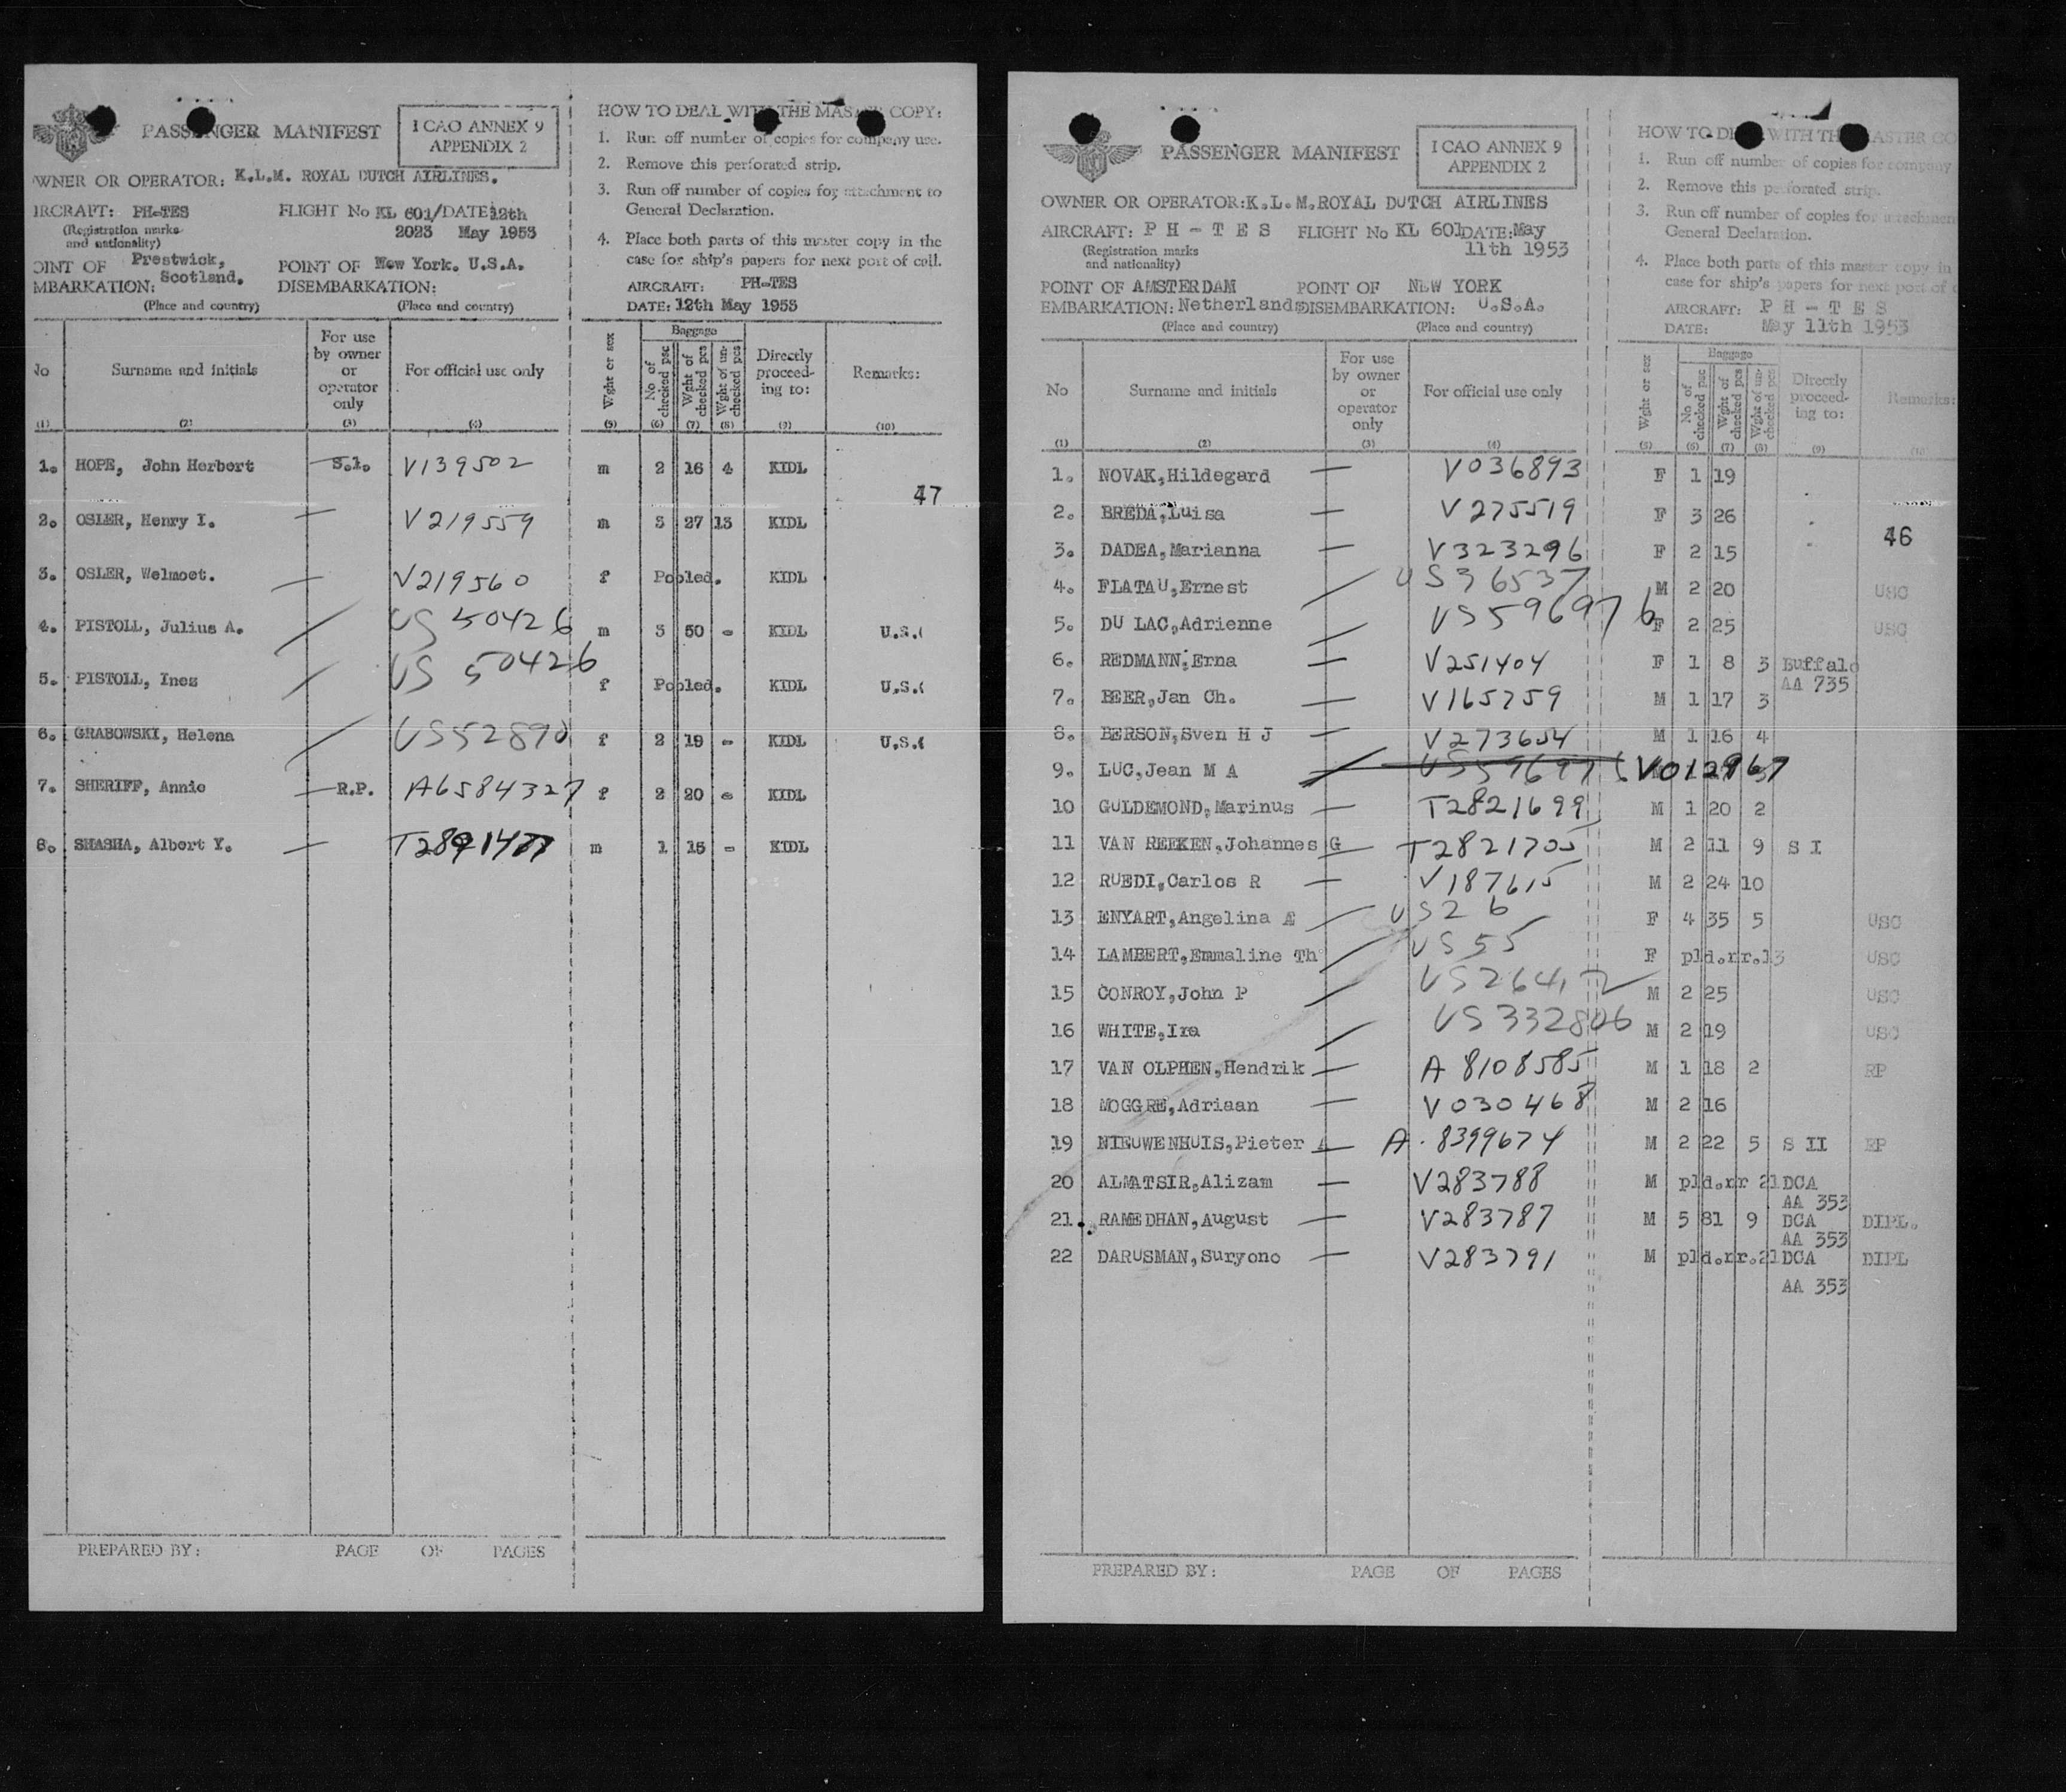 PASSENGER MANIFEST
ICAO ANNEX 9
APPENDIX 2
WNER OR OPERATOR: K.L.M. ROYAL DUTCH AIRLINES.
IRCRAFT: PH-TES FLIGHT No KL 601/ DATE: 12th
(Registration marks and nationality) 2023 May 1953
OINT OF Prestwick, POINT OF New York. U.S.A.
MBARKATION: Scotland. DISEMBARKATION:
(Place and country) (Place and country)
HOW TO DEAL WITH THE MASTER COPY:
1. Run off number of copies for company use.
2. Remove this perforated strip.
3. Run off number of copies for attachment to
General Declaration.
4. Place both parts of this master copy in the
case for ship's papers for next port of call.
AIRCRAFT: PH-TES
DATE: 12th May 1953
No Surname and initials For use by owner or operator only For official use only Wght or sex Baggage No of checked psc Wght of checked pcs Wght of un-checked pcs Directly proceed-ing to: Remarks:
(1) (2) (3) (4) (5) (6) (7) (8) (9) (10)
1. HOPE, John Herbert S.I. V139502 m 2 16 4 KIDL
47
2. OSLER, Henry I. — V219559 m 3 27 13 KIDL
3. OSLER, Welmoet. — V219560 f Pooled. KIDL
4. PISTOLL, Julius A. / US 50426 m 3 50 - KIDL U.S.(
5. PISTOLL, Inez / US 50426 f Pooled. KIDL U.S.(
6. GRABOWSKI, Helena / US52890 f 2 19 - KIDL U.S.(
7. SHERIFF, Annie — R.P. A6584327 f 2 20 - KIDL
8. SHASHA, Albert Y. — m 1 15 - KIDL
PREPARED BY: PAGE OF PAGES
PASSENGER MANIFEST
ICAO ANNEX 9
APPENDIX 2
OWNER OR OPERATOR: K.L.M. ROYAL DUTCH AIRLINES
AIRCRAFT: P H - T E S FLIGHT No KL 601 DATE: May
(Registration marks and nationality) 11th 1953
POINT OF AMSTERDAM POINT OF NEW YORK
EMBARKATION: Netherlands DISEMBARKATION: U.S.A.
(Place and country) (Place and country)
HOW TO DEAL WITH THE MASTER CO
1. Run off number of copies for company
2. Remove this perforated strip.
3. Run off number of copies for attachmen
General Declaration.
4. Place both parts of this master copy in
case for ship's papers for next port of c
AIRCRAFT: P H - T E S
DATE: May 11th 1953
No Surname and initials For use by owner or operator only For official use only Wght or sex Baggage No of checked psc Wght of checked pcs Wght of un-checked pcs Directly proceed-ing to: Remarks:
(1) (2) (3) (4) (5) (6) (7) (8) (9) (10
1. NOVAK, Hildegard — V036893 F 1 19
2. BREDA, Luisa — V275519 F 3 26
46
3. DADEA, Marianna — V323296 F 2 15
4. FLATAU, Ernest / US36537 M 2 20 USC
5. DU LAC, Adrienne / US596976 F 2 25 USC
6. REDMANN, Erna — V251404 F 1 8 3 Buffalo
AA 735
7. BEER, Jan Ch. — V165759 M 1 17 3
8. BERSON, Sven H J — V273654 M 1 16 4
9. LUC, Jean M A — V012967
10 GULDEMOND, Marinus — T2821699 M 1 20 2
11 VAN REEKEN, Johannes G — T2821705 M 2 11 9 S I
12 RUEDI, Carlos R — V187615 M 2 24 10
13 ENYART, Angelina / US26 F 4 35 5 USC
14 LAMBERT, Emmaline Th / US55 F pld.nr.13 USC
15 CONROY, John P / M 2 25 USC
16 WHITE, Ira / US332806 M 2 19 USC
17 VAN OLPHEN, Hendrik — A 8108585 M 1 18 2 RP
18 MOGGRE, Adriaan — V030468 M 2 16
19 NIEUWENHUIS, Pieter — A. 8399674 M 2 22 5 S II RP
20 ALMATSIR, Alizam — V283788 M pld.nr 21 DCA
AA 353
21. RAMEDHAN, August — V283787 M 5 81 9 DCA DIPL.
AA 353
22 DARUSMAN, Suryono — V283791 M pld.nr.21 DCA DIPL
AA 353
PREPARED BY: PAGE OF PAGES